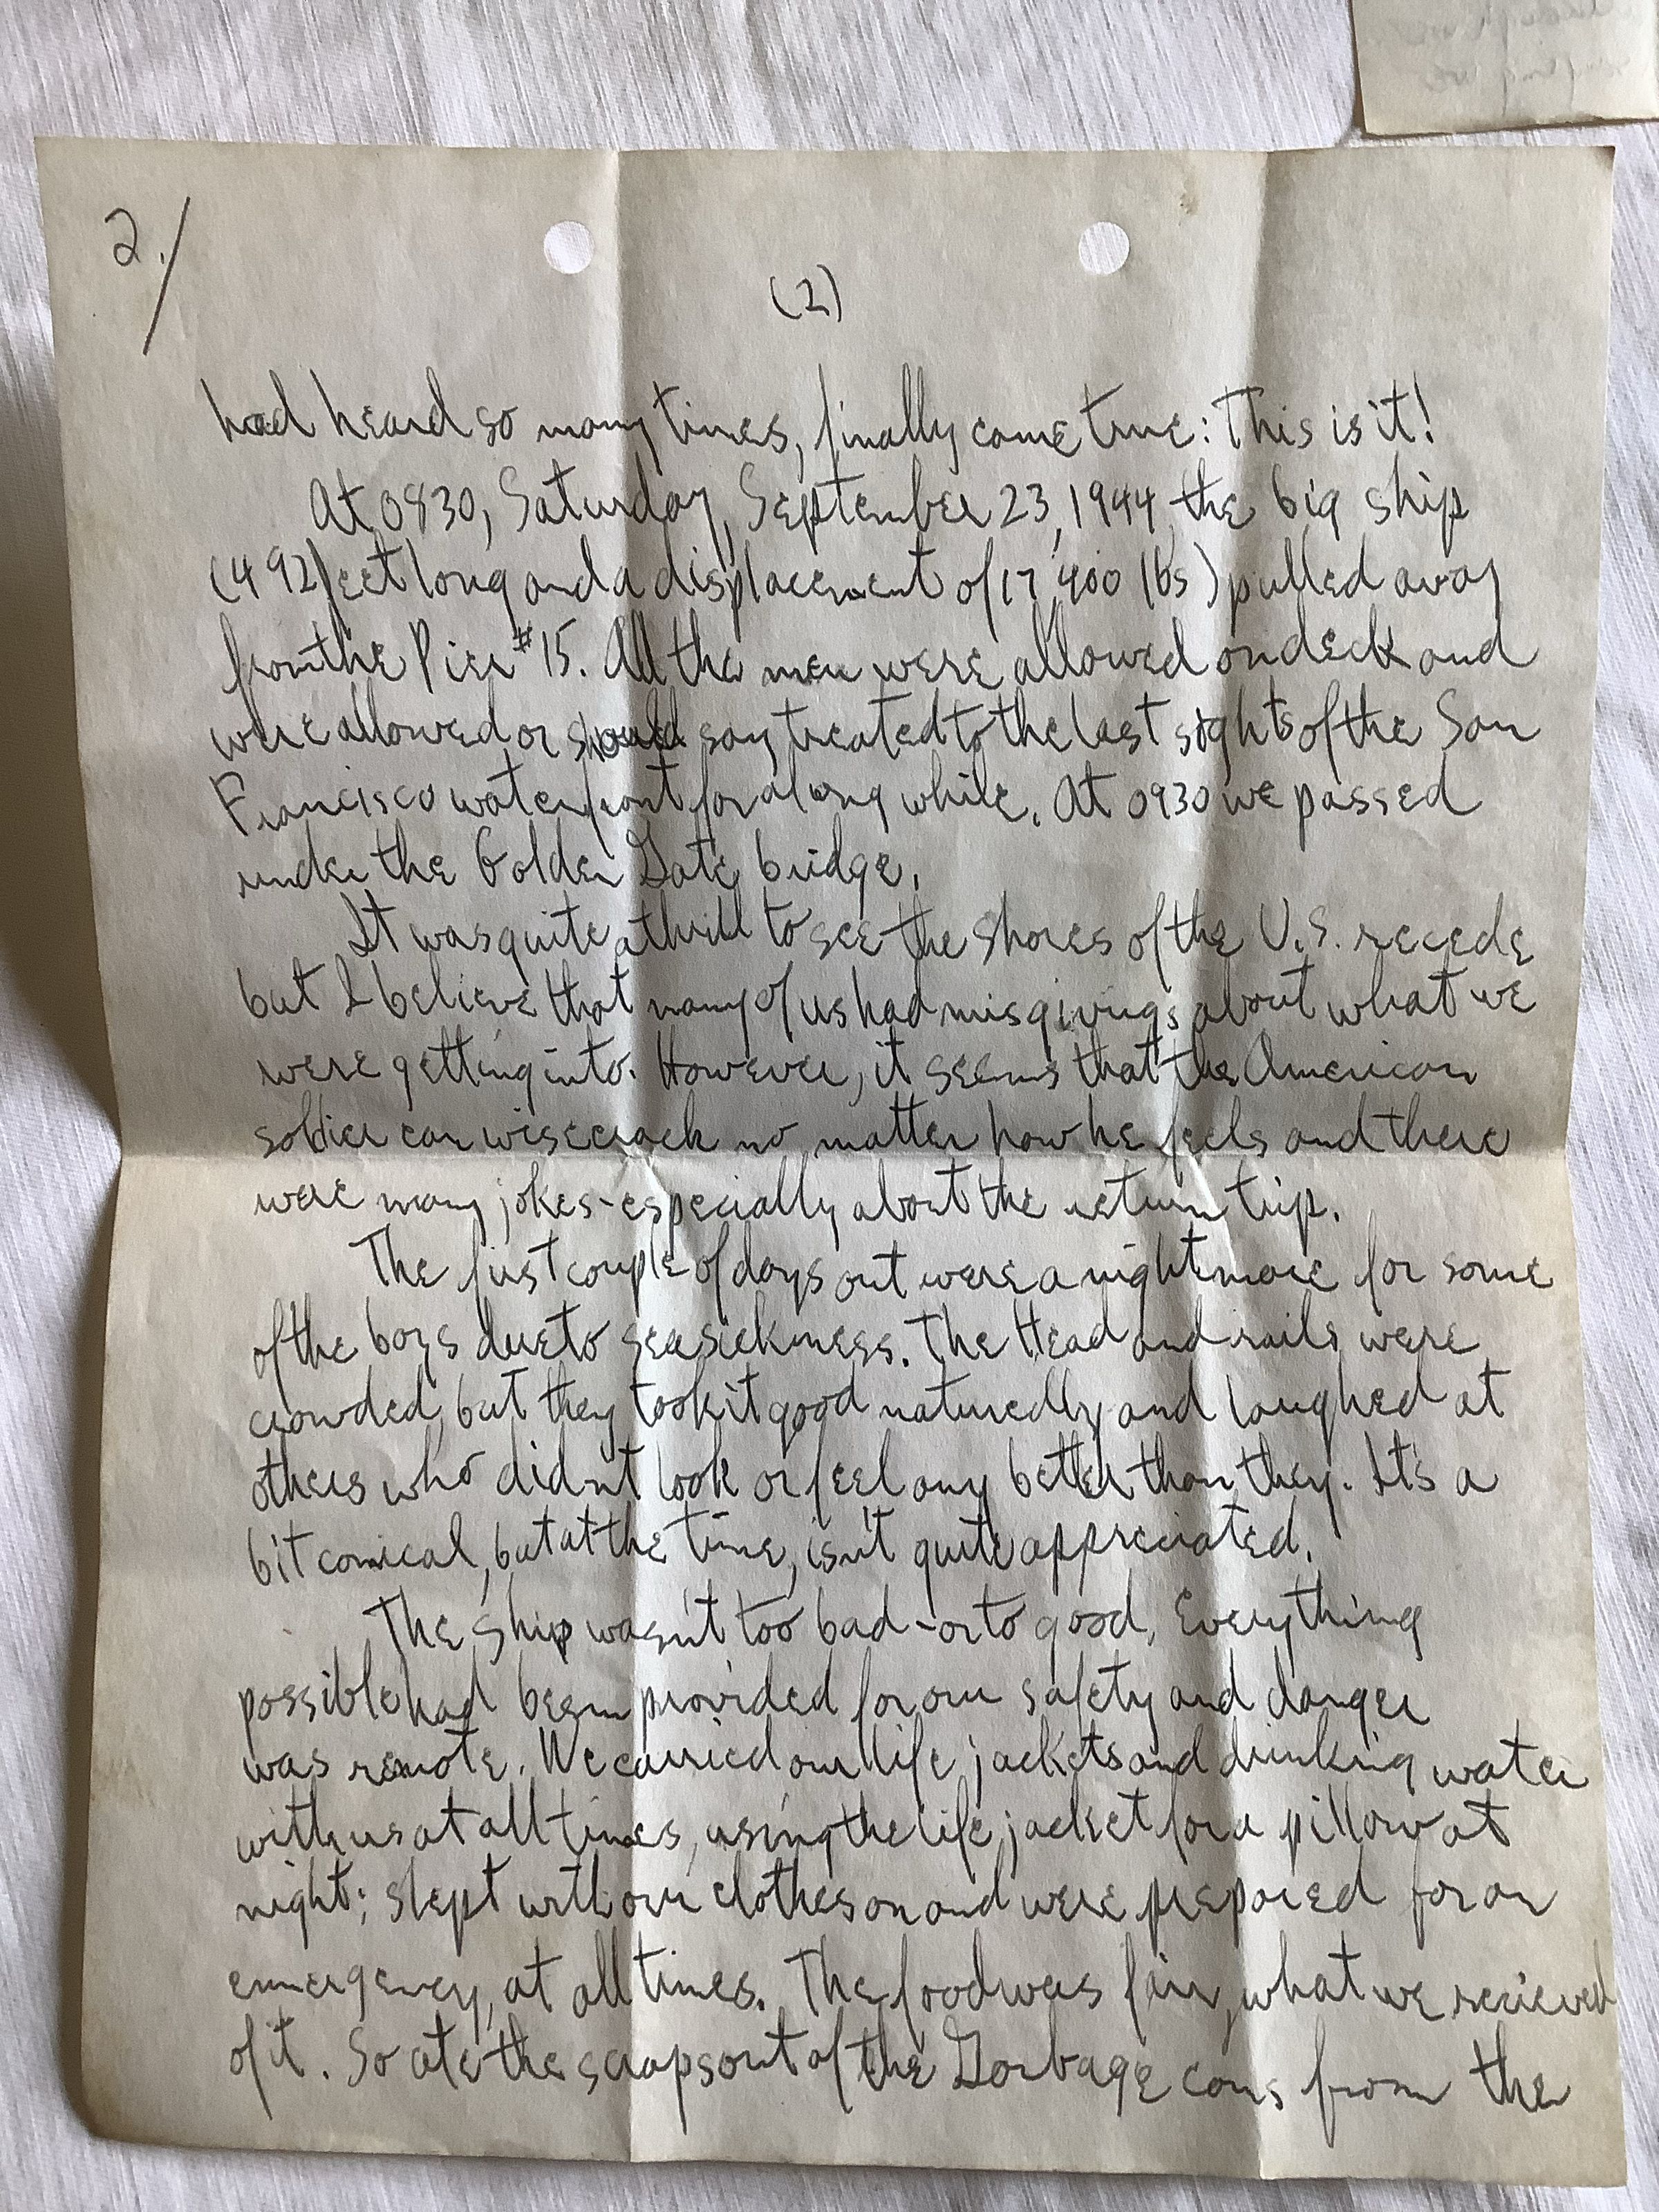 2./
(2)
had heard so many times, finally come true: This is it!
At 0830, Saturday, September 23, 1944, the big ship
(492 feet long and a displacement of 17,400 lbs) pulled away
from the Pier #15. All the men were allowed on deck and
were allowed or should say treated to the last sights of the San
Francisco waterfront for a long while. At 0930 we passed
under the Golden Gate bridge.
It was quite a thrill to see the shores of the U.S. recede
but I believe that many of us had misgivings about what we
were getting into. However, it seems that the American
soldier can wisecrack no matter how he feels and there
were many jokes - especially about the return trip.
The first couple of days out were a nightmare for some
of the boys due to seasickness. The Head and rails were
crowded, but they took it good naturedly and laughed at
others who didn't look or feel any better than they. It's a
bit comical, but at the time, isn't quite appreciated.
The ship wasn't too bad - or to good. Everything
possible had been provided for our safety and danger
was remote. We carried our life jackets and drinking water
with us at all times, using the life jacket for a pillow at
night; slept with our clothes on and were prepared for an
emergency, at all times. The food was fair, what we recieved
of it. So ate the scraps out of the Garbage cans from the